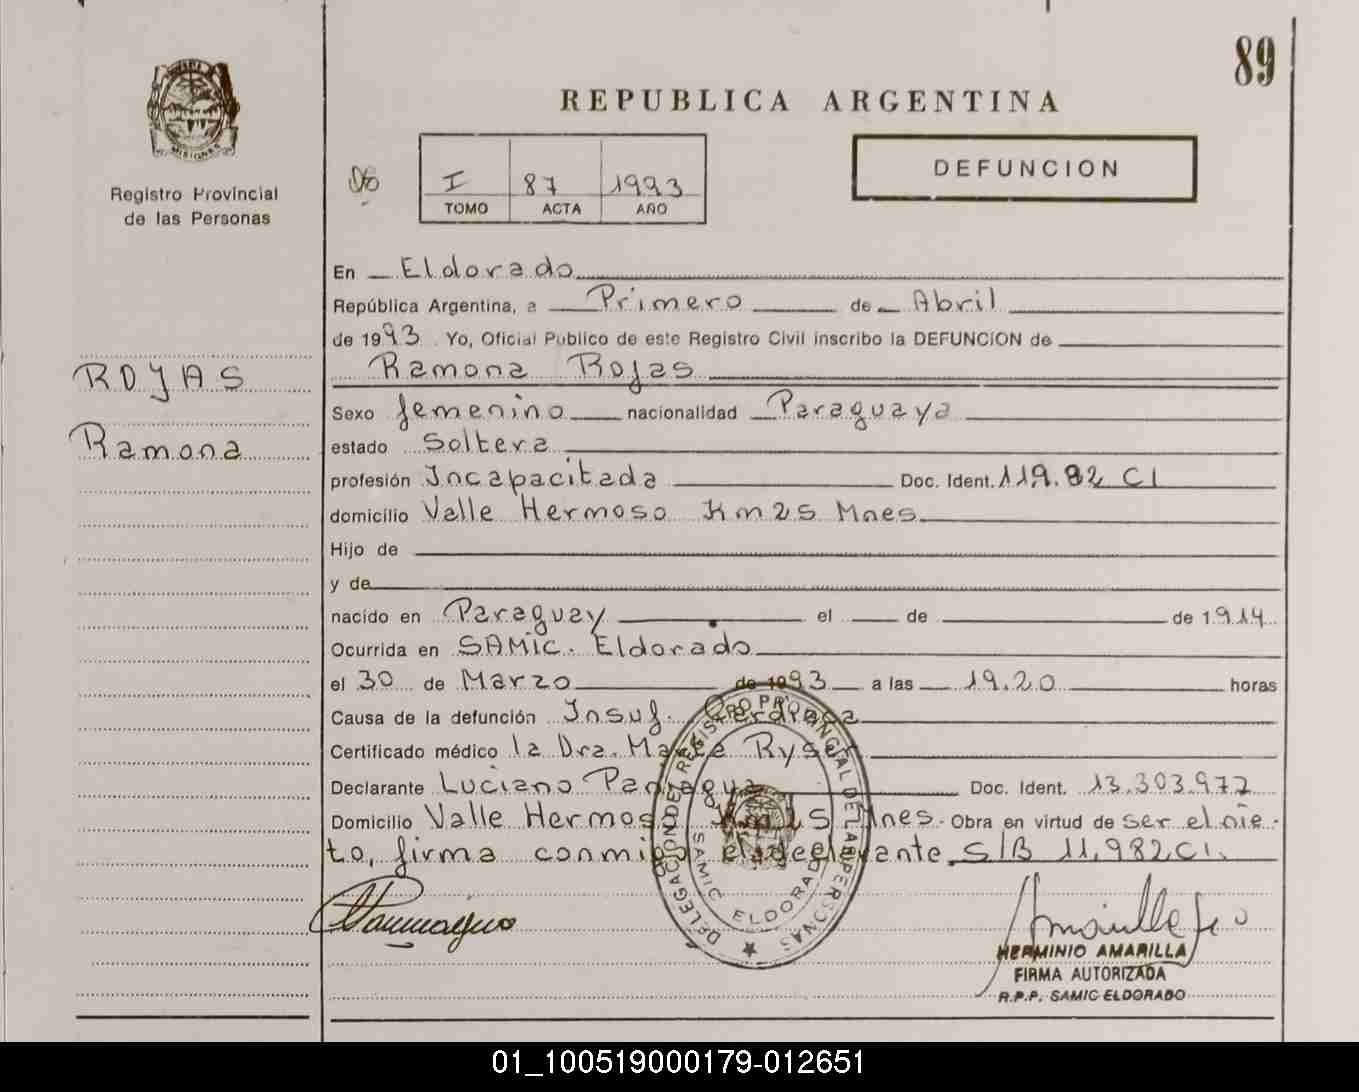 89
REPUBLICA ARGENTINA
MISIONES
Registro Provincial
de las Personas
I 87 1993
TOMO ACTA AÑO
DEFUNCION
ROJAS
Ramona
En Eldorado
República Argentina, a Primero de Abril
de 1993 Yo, Oficial Publico de este Registro Civil inscribo la DEFUNCION de
Ramona Rojas
Sexo femenino nacionalidad Paraguaya
estado Soltera
profesión Incapacitada Doc. Ident. 119.82 CI
domicilio Valle Hermoso Km 25 Mnes
Hijo de
y de
nacido en Paraguay el de de 1914
Ocurrida en SAMIC. Eldorado
el 30 de Marzo de 1993 a las 19.20 horas
Causa de la defunción Insuf. Cardiaca
Certificado médico la Dra. Ryser
Declarante Luciano Paniagua Doc. Ident. 13.303.972
Domicilio Valle Hermoso Km 25 Mnes. Obra en virtud de ser el nie-
to, firma conmigo el declarante. S/B 11.982 CI.
DELEGACION DEL REGISTRO PROVINCIAL DE LAS PERSONAS
SAMIC ELDORADO
HERMINIO AMARILLA
FIRMA AUTORIZADA
R.P.P. SAMIC ELDORADO
01_100519000179-012651